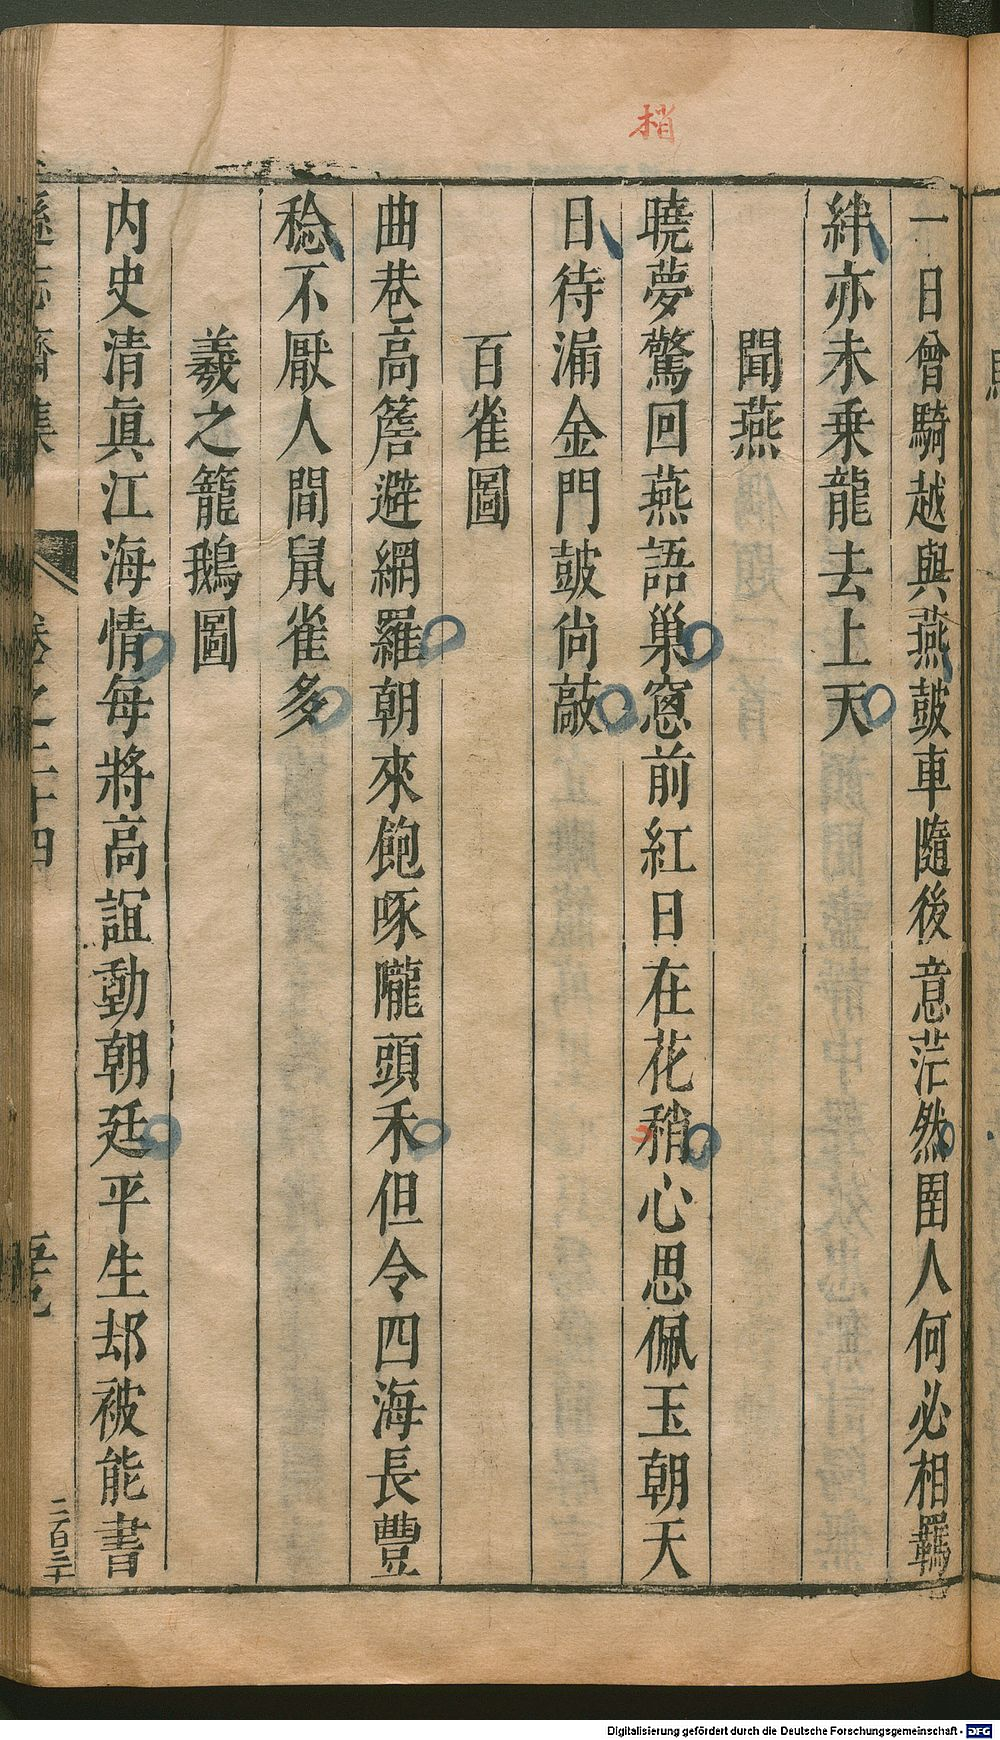 梢
一日曾騎越與燕皷車隨後意茫然圉人何必相羈
絆亦未乗龍去上天
聞燕
曉夢驚回燕語巢窻前紅日在花稍心思佩玉朝天
日待漏金門皷尙敲
百雀圖
曲巷高簷避網羅朝來飽啄隴頭禾但令四海長豐
稔不厭人間鼠雀多
羲之籠鵝圖
内史清眞江海情每將高誼動朝廷平生却被能書
遜志齋集 卷之二十四
二百二十
Digitalisierung gefördert durch die Deutsche Forschungsgemeinschaft - DFG